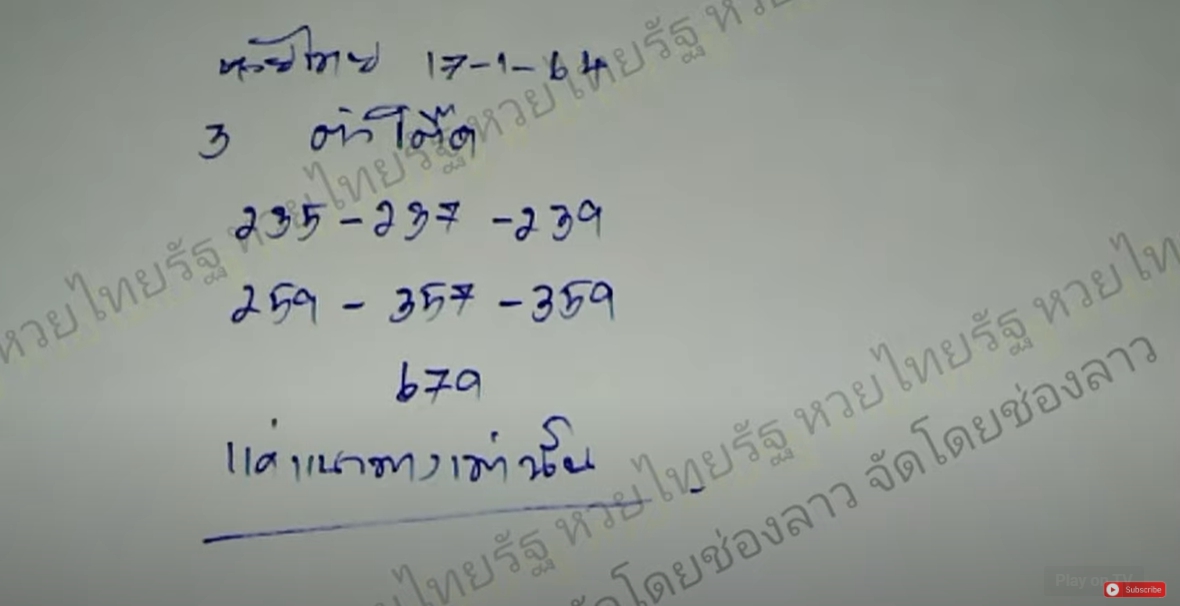 หวยไทย 17-1-64
3 ตัวโต๊ด
235 - 237 - 239
259 - 357 - 359
679
แค่แนวทางเท่านั้น
หวยไทยรัฐ หวยไทยรัฐ หวยไทยรัฐ
หวยไทยรัฐ หวยไทยรัฐ หวยไทยรัฐ
จัดโดยช่องลาว จัดโดยช่องลาว
Play on TV
Subscribe